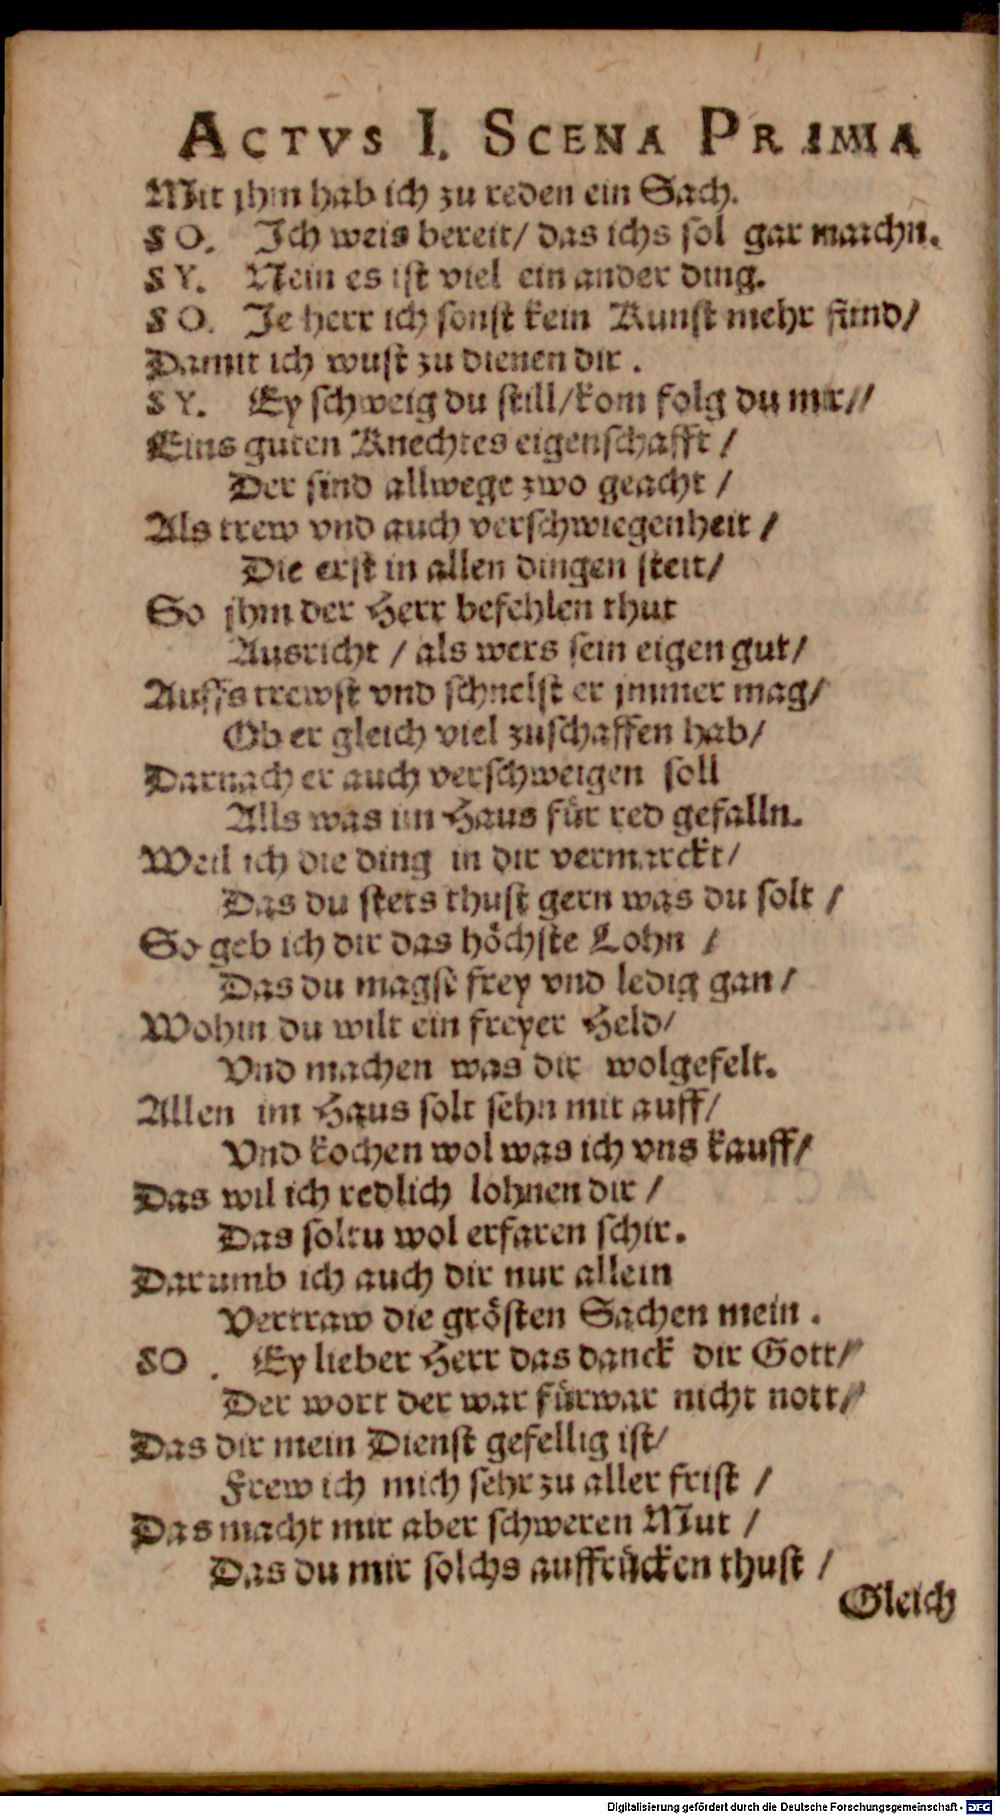 ACTVS I. SCENA PRIMA
Mit jhm hab ich zu reden ein Sach.
SO. Ich weis bereit/ das ichs sol gar machn.
SY. Nein es ist viel ein ander ding.
SO. Je herr ich sonst kein Kunst mehr find/
Damit ich wust zu dienen dir.
SY. Ey schweig du still/ kom folg du mir//
Eins guten Knechtes eigenschafft /
Der sind allwege zwo geacht /
Als trew vnd auch verschwiegenheit /
Die erst in allen dingen steit/
So jhm der Herr befehlen thut
Ausricht / als wers sein eigen gut/
Auffs trewst vnd schnelst er jmmer mag/
Ob er gleich viel zuschaffen hab/
Darnach er auch verschweigen soll
Alls was im Haus für red gefalln.
Weil ich die ding in dir vermarckt/
Das du stets thust gern was du solt /
So geb ich dir das höchste Lohn /
Das du magst frey vnd ledig gan /
Wohin du wilt ein freyer Held/
Vnd machen was dir wolgefelt.
Allen im Haus solt sehn mit auff/
Vnd kochen wol was ich vns kauff/
Das wil ich redlich lohnen dir /
Das soltu wol erfaren schir.
Darumb ich auch dir nur allein
Vertraw die grösten Sachen mein.
SO. Ey lieber Herr das danck dir Gott/
Der wort der war fürwar nicht nott/
Das dir mein Dienst gefellig ist/
Frew ich mich sehr zu aller frist /
Das macht mir aber schweren Mut /
Das du mir solchs auffrücken thust /
Gleich
Digitalisierung gefördert durch die Deutsche Forschungsgemeinschaft - DFG